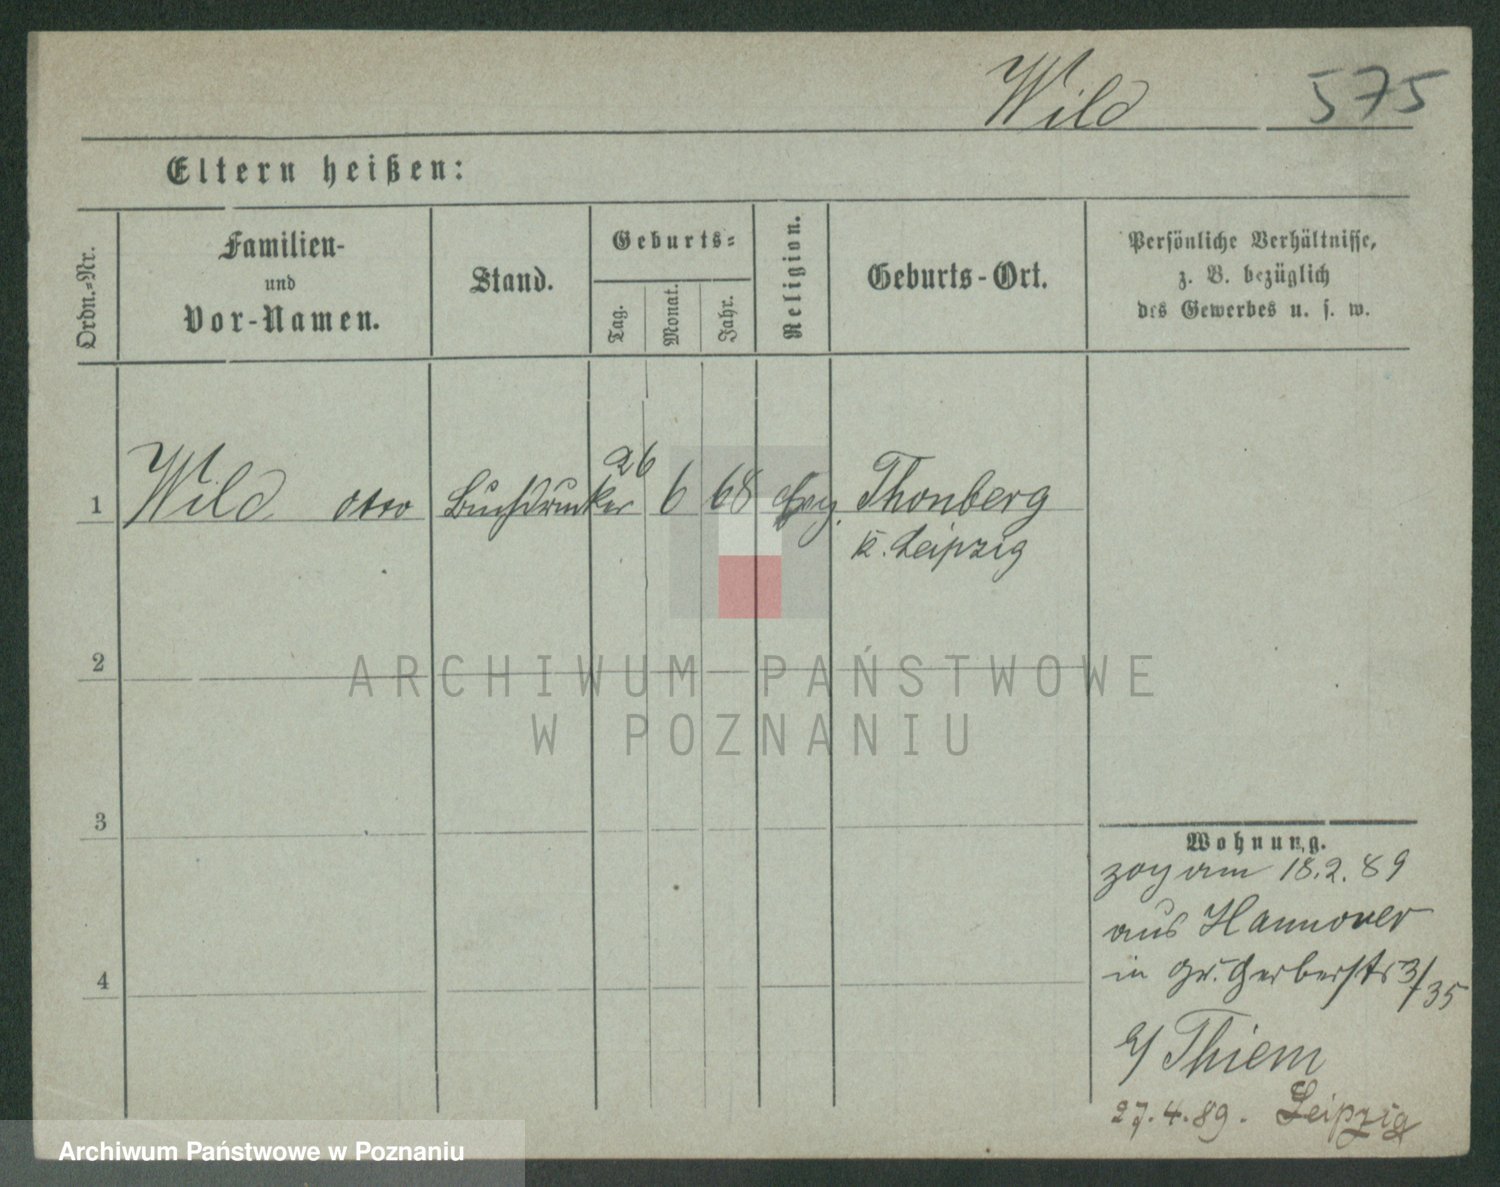 Wild 575
Eltern heißen:
Ordn.-Nr.
Familien-
und
Vor-Namen.
Stand.
Geburts-
Tag.
Monat.
Jahr.
Religion.
Geburts-Ort.
Persönliche Verhältnisse,
z. B. bezüglich
des Gewerbes u. s. w.
1 Wild Otto Buchdrucker 26 6 68 evg. Thonberg
K. Leipzig
2
ARCHIWUM PAŃSTWOWE
W POZNANIU
3
Wohnung.
zog am 18.2.89
aus Hannover
4
in Gr. Gerberstr 3/35
b/ Thiem
27.4.89. Leipzig
Archiwum Państwowe w Poznaniu